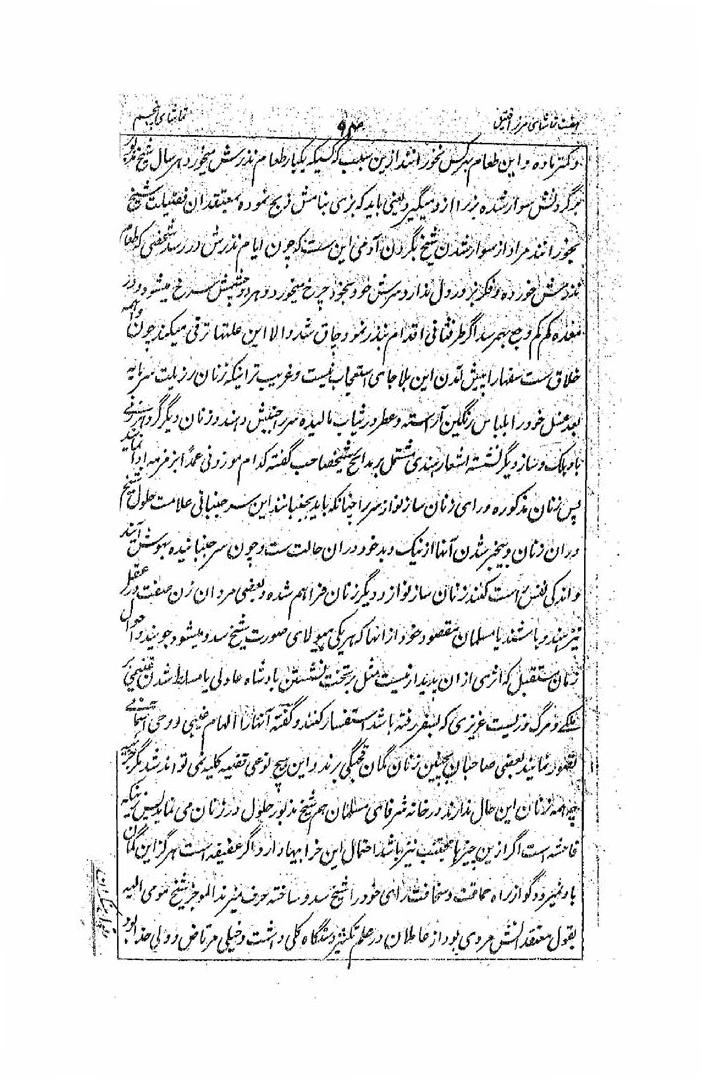 هفت تماشای مرزا قتیل ۹۴ تماشای پنجم
وکتر ناده و این طعام بهر کس نخورانند ازین سبب که کسیکه یکبار طعام نذرش میخورد هر سال شیخ مذکور
بر گردنش سوار شده بز را ازو میگیرد یعنی باید که بزی بنامش ذبح نموده معتقدان فضیلت شیخ
بخورانند مراد از سوار شدن شیخ بگردن آدمی این ست که چون ایام نذرش در رسد شخصی که طعام
نذرش خورده و فکر بز در دل ندارد سرش خود بخود چرخ میخورد و هر دو چشمش سرخ میشود و در
معده کم کم وجع بهم رسد اگر طرفثانی اقدام بنذر نمود چاق شد والا این علتها ترقی میکند چون واهمه
خلاق ست سفها را پیش آمدن این بلا جای استعجاب نیست و غریب تر اینکه زنان رزیلت سرمایه
بعد غسل خود را بلباس رنگین آراسته و عطر در ثیاب مالیده سر را جنبش دهند و زنان دیگر گرد
با دهلک و ساز دیگر نشسته اشعار هندی مشتمل بر مدایح شیخ صاحب گفته کدام موزونی عمداً بزمزمه ادا نمایند
پس زنان مذکوره ورای زنان ساز نواز سر را چنانکه باید بجنبانند این سر جنبانی علامت حلول شیخ
در ان زنان و بیخبر شدن آنها از نیک و بد خود در ان حالت ست و چون سر جنبانیده بهوش آیند
و اندکی نفس راست کنند زنان ساز نواز و دیگر زنان فراهم شده و بعضی مردان زن صفت در عقل
نیز هندو باشند یا مسلمان مقصود خود از انها که هر یکی هیولای صورت شیخ سدو میشود جویند و احوال
زمان مستقبل که اثری از ان پدیدار نیست مثل بر تخت نشستن بادشاه عادلی یا مسلط شدن غنیمی بر
ملکی و مرگ و زیست عزیزی که بسفر رفته باشد استفسار کنند و گفته آنها را الهام غیبی و وحی آسمانی
تصور نمایند بعضی صاحبان بچنین زنان گمان قحبگی برند و این هیچ نوعی قضیه کلیه نمی تواند شد
چه همه زنان این حال ندارند در خانه شرفای مسلمانان هم شیخ مذبور حلول در زنان می نماید پس زنیکه
فاحشه است اگر ازین چیزها مجتنب نیز باشد احتمال این خرابیها دارد و اگر عفیفه است هرگز این گمان
باو نمیرود گو از راه حماقت و سخافت رای خود را شیخ سدو ساخته حرف میزند الموجز شیخ مومی الیه
بقول معتقدانش مردی بود از عاملان در علم تکسیر دستگاه کلی داشت و خیلی مرتاض و ولی خدا بود